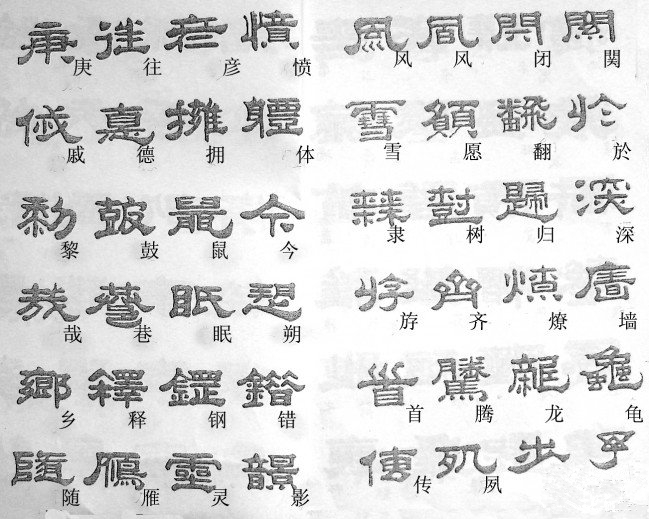 庚 往 彦 愤 风 风 闭 関
戚 德 拥 体 雪 愿 翻 於
黎 鼓 鼠 今 隶 树 归 深
哉 巷 眠 朔 斿 齐 燎 墙
乡 释 钢 错 首 腾 龙 龟
随 雁 灵 影 传 夙